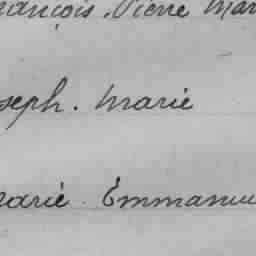 rançois, Pierre Mar
seph. Marie
Marie Emmanu